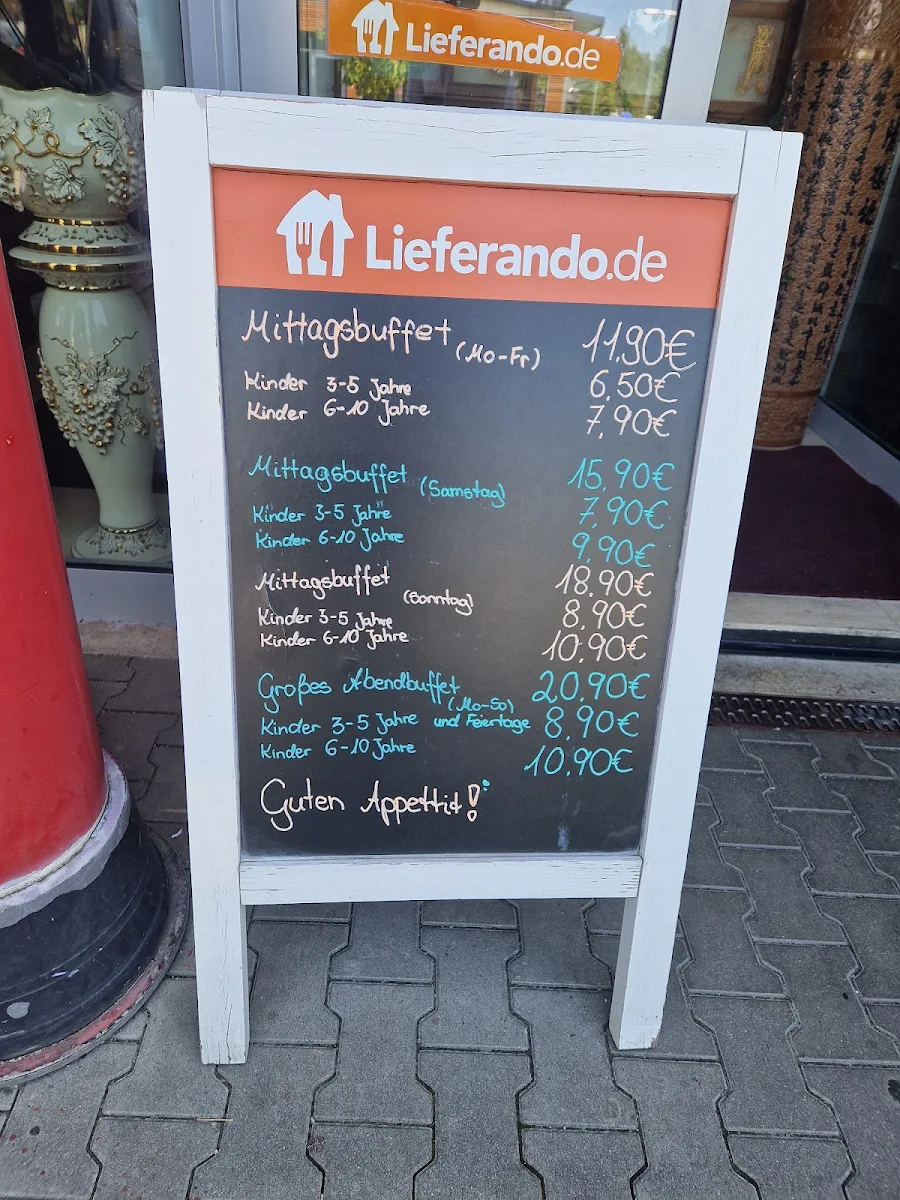 Lieferando.de
Lieferando.de
Mittagsbuffet (Mo-Fr) 11,90€
Kinder 3-5 Jahre 6,50€
Kinder 6-10 Jahre 7,90€
Mittagsbuffet (Samstag) 15,90€
Kinder 3-5 Jahre 7,90€
Kinder 6-10 Jahre 9,90€
Mittagsbuffet (Sonntag) 18,90€
Kinder 3-5 Jahre 8,90€
Kinder 6-10 Jahre 10,90€
Großes Abendbuffet (Mo-So) 20,90€
Kinder 3-5 Jahre und Feiertage 8,90€
Kinder 6-10 Jahre 10,90€
Guten Appettit!